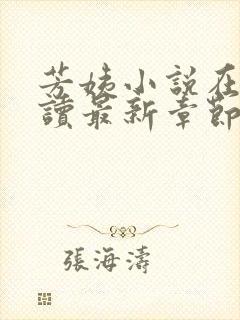 芳姨小説在
讀最新章節
張海濤